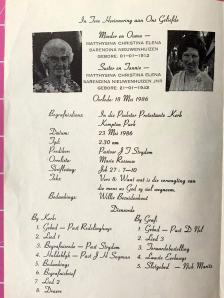 In Tere Herinnering aan Ons Geliefde
Moeder en Ouma —
MATTHYSINA CHRISTINA ELENA
SARENDINA NIEUWENHUIZEN
GEBORE: 01-01-1912
Suster en Tannie —
MATTHYSINA CHRISTINA ELENA
SARENDINA NIEUWENHUIZEN JNR
GEBORE: 21-01-1942
Oorlede: 18 Mei 1986
Begrafnisdiens: In die Pinkster Protestante Kerk
Kempton Park
Datum: 23 Mei 1986
Tyd: 2.30 nm
Prediker: Pastoor J T Strydom
Orreliste: Marie Rossouw
Skriflesing: Job 27 : 7-10
Teks: Vers 8: Want wat is die verwagting van
die mens as God sy siel wegneem.
Bedankings: Willie Bezuidenhout
Diensorde
By Kerk:
1. Gebed — Past
2. Lied 1
3. Begrafnisrede — Past Strydom
4. Huldeblyk — Past J H Segman
5. Bedankings
6. Begrafnisbrief
7. Lied 2
8. Draers
By Graf:
1. Gebed — Past D Nel
2. Lied 3
3. Teraardebestelling
4. Laaste Eerbewys
5. Slotgebed — Nick Maritz